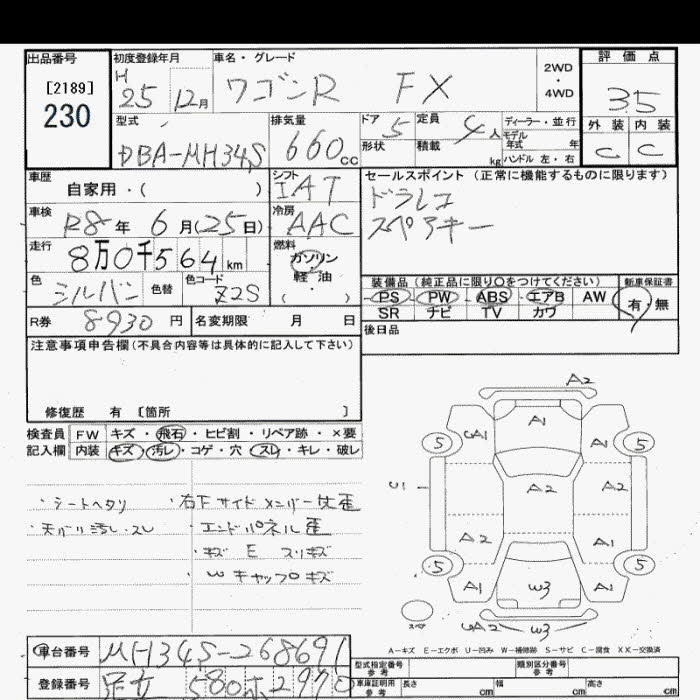 出品番号 初度登録年月 車名・グレード 2WD・4WD 評価点
[2189]
230
H25 12月 ワゴンR FX 3.5
型式 排気量 ドア 定員 ディーラー・並行 外装 内装
DBA-MH34S 660cc 5 4人 モデル年式 年 C C
形状 積載 kg ハンドル 左・右
車歴 シフト セールスポイント (正常に機能するものに限ります)
自家用・( ) IAT ドラレコ
車検 冷房 スペアキー
R8年 6月(25日) AAC
走行 燃料
8万0千564km ガソリン・軽油
( ・ )
色 色替 色コード 装備品 (純正品に限り○をつけてください) 新車保証書
シルバー Z2S PS PW ABS エアB AW 有・無
SR ナビ TV カワ
R券 8930円 名変期限 月 日 後日品
注意事項申告欄(不具合内容等は具体的に記入して下さい)
修復歴 有 〔箇所 〕
検査員 FW キズ・飛石・ヒビ割・リペア跡・×要
記入欄 内装 キズ・汚レ・コゲ・穴・スレ・キレ・破レ
・シートヘタリ ・右下サイドメンバー 歪
・天バリ汚レ・スレ ・エンドパネル歪
・キズ E スリキズ
・Wキャップキズ
A2
A1
5 A1 A1 5
U1 A2 A2
A2 A1
5 5
A1 W3 A1
スペア A2 W3
A-キズ E-エクボ U-凹み W-補修跡 S-サビ C-腐食 XX-交換済
車台番号 MH34S-268691
型式指定番号 参考 類別区分番号 参考
登録番号 足立 580 ホ 2970
車庫証明用 参考 長さ cm 幅 cm 高さ cm